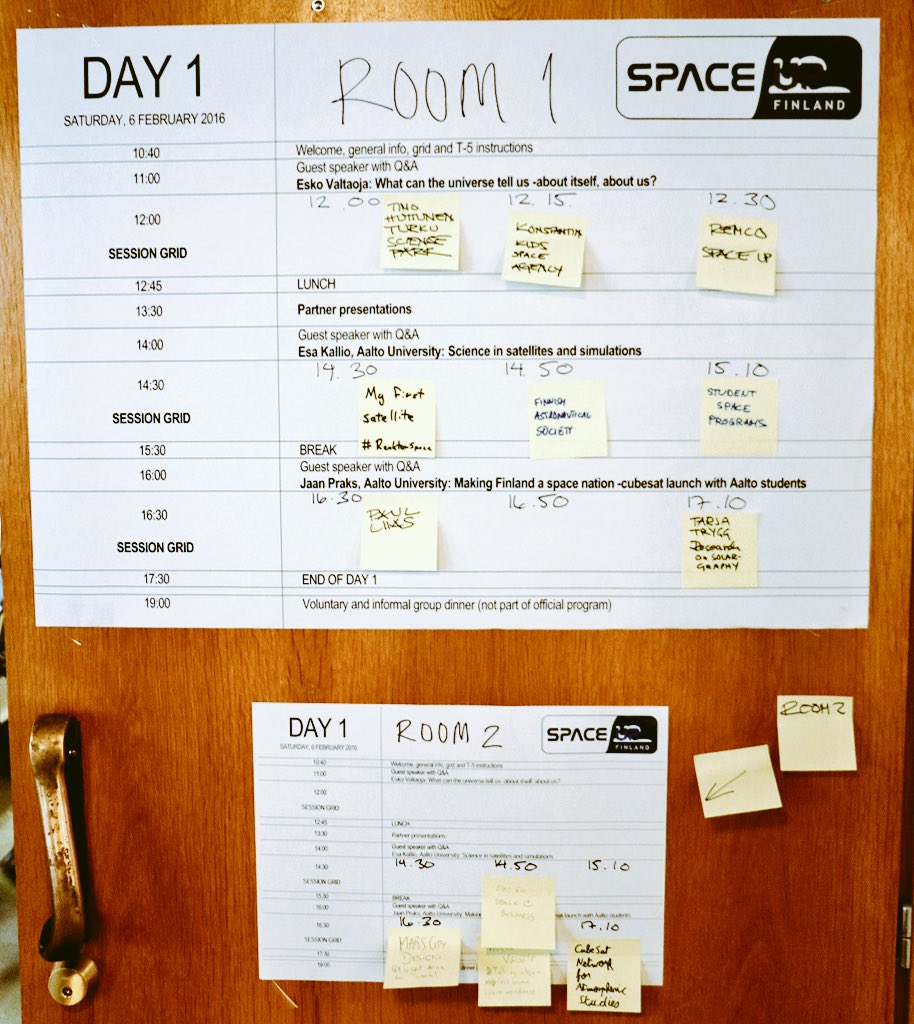 DAY 1
SATURDAY, 6 FEBRUARY 2016
ROOM 1
SPACE UP
FINLAND
10:40 Welcome, general info, grid and T-5 instructions
11:00 Guest speaker with Q&A
Esko Valtaoja: What can the universe tell us -about itself, about us?
12.00 12.15. 12.30
12:00
SESSION GRID
TINO
HUTTUNEN
TURKU
SCIENCE
PARK
KONSTANTIN
KIDS
SPACE
AGENCY
REMCO
SPACE UP
12:45 LUNCH
13:30 Partner presentations
14:00 Guest speaker with Q&A
Esa Kallio, Aalto University: Science in satellites and simulations
14.30 14.50 15.10
14:30
SESSION GRID
My first
satellite
#ReaktorSpace
FINNISH
ASTRONAUTICAL
SOCIETY
STUDENT
SPACE
PROGRAMS
15:30 BREAK
16:00 Guest speaker with Q&A
Jaan Praks, Aalto University: Making Finland a space nation -cubesat launch with Aalto students
16.30 16.50 17.10
16:30
SESSION GRID
PAUL
LIIAS
TARJA
TRYGG
ON SOLAR-
GRAPHY
17:30 END OF DAY 1
19:00 Voluntary and informal group dinner (not part of official program)
DAY 1
SATURDAY, 6 FEBRUARY 2016
ROOM 2
SPACE UP
FINLAND
10:40 Welcome, general info, grid and T-5 instructions
11:00 Guest speaker with Q&A
Esko Valtaoja: What can the universe tell us -about itself, about us?
12:00
SESSION GRID
12:45 LUNCH
13:30 Partner presentations
14:00 Guest speaker with Q&A
Esa Kallio, Aalto University: Science in satellites and simulations
14.30 14.50 15.10
14:30
SESSION GRID
15:30 BREAK
16:00 Guest speaker with Q&A
Jaan Praks, Aalto University: Making
sat launch with Aalto students
16.30 17.10
16:30
SESSION GRID
SPACE
BUSINESS
MARS CITY
DESIGN
CubeSat
Network
for
Atmospheric
Studies
17:30
19:00 dinner
ROOM 2